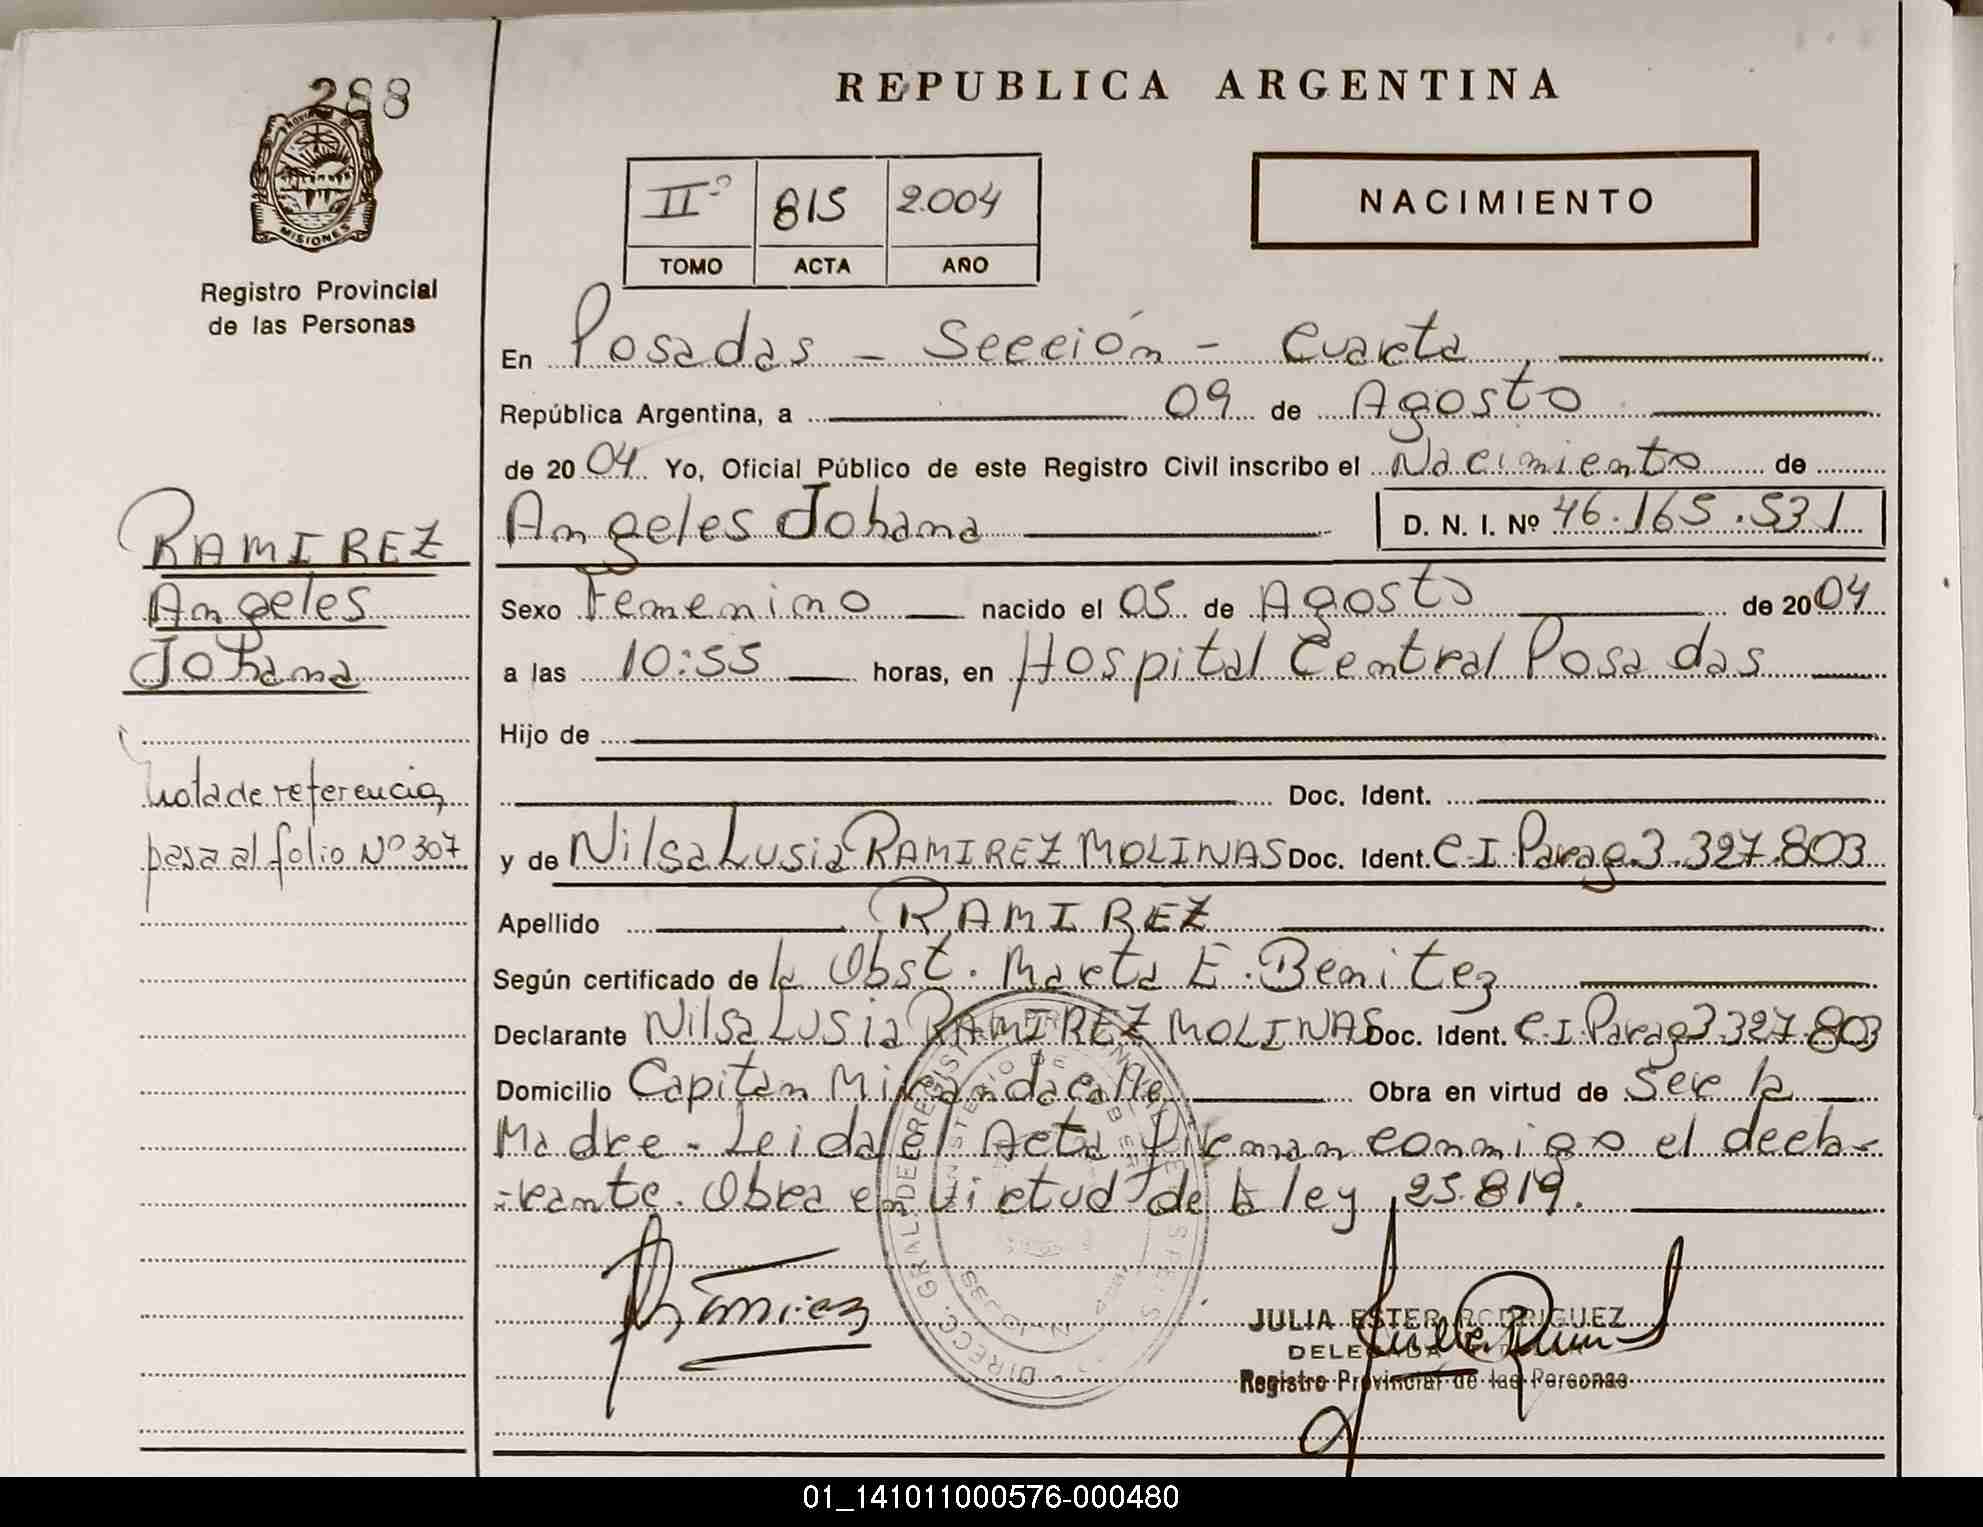 288
PROVINCIA DE
MISIONES
Registro Provincial
de las Personas
RAMIREZ
Angeles
Johana
Nota de referencia,
pasa al folio Nº 307
REPUBLICA ARGENTINA
IIº 815 2.004
TOMO ACTA AÑO
NACIMIENTO
En Posadas - Sección - Cuarta
República Argentina, a 09 de Agosto
de 2004 Yo, Oficial Público de este Registro Civil inscribo el Nacimiento de
Angeles Johana D. N. I. Nº 46.165.531
Sexo Femenino nacido el 05 de Agosto de 2004
a las 10:55 horas, en Hospital Central Posadas
Hijo de
Doc. Ident.
y de Nilsa Lusia RAMIREZ MOLINAS Doc. Ident. C.I. Parag 3.327.803
Apellido RAMIREZ
Según certificado de la Obst. Marta E. Benitez
Declarante Nilsa Lusia RAMIREZ MOLINAS Doc. Ident. C.I. Parag 3.327.803
Domicilio Capitan Miranda calle Obra en virtud de Ser la
Madre - Leida el Acta Firman conmigo el decla-
-rante. Obra en virtud de la ley 25.819.
Ramirez
JULIA ESTER RODRIGUEZ
DELEGADA
Registro Provincial de las Personas
01_141011000576-000480